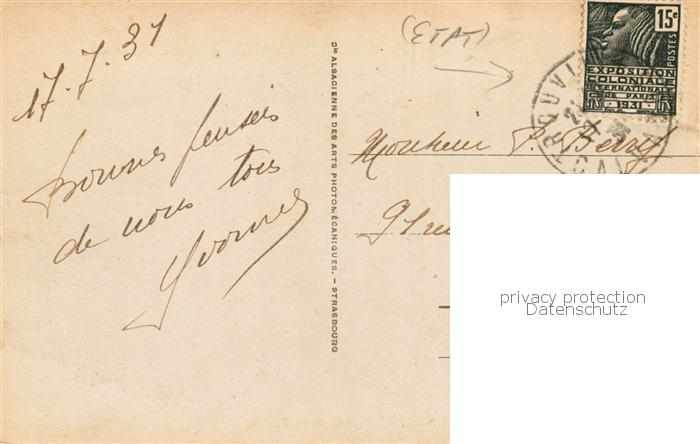 17.7.31
Bonnes pensées
de nous tous
Yvonne
Cie ALSACIENNE DES ARTS PHOTOMÉCANIQUES. - STRASBOURG
(ETAT)
15c
POSTES
EXPOSITION
COLONIALE
INTERNATIONALE
DE PARIS
1931
TROUVILLE
Monsieur P. Berry
privacy protection
Datenschutz